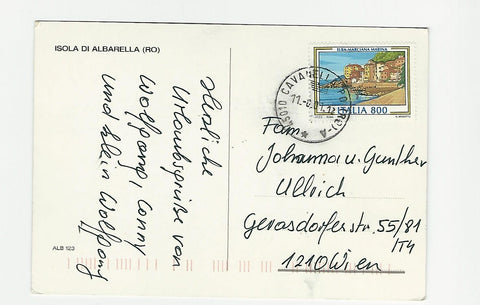 ISOLA DI ALBARELLA (RO)
Herzliche
Urlaubsgrüße von
Wolfgang, Conny
und klein Wolfgang
ALB 123
ELBA-MARCIANA MARINA
ITALIA 800
45010 CAVANELLA PO (RO) - A
Fam
Johanna u. Gunther
Ullrich
Gerasdorferstr. 55/81
/T4
1210 Wien